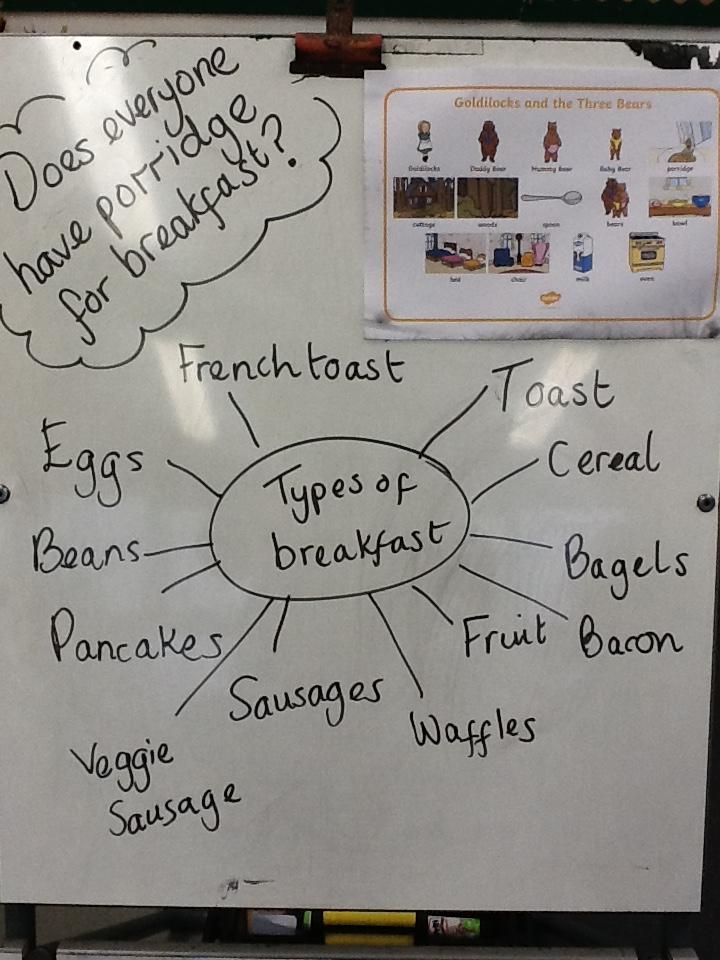 Does everyone
have porridge
for breakfast?
Goldilocks and the Three Bears
Goldilocks Daddy Bear Mummy Bear Baby Bear porridge
cottage woods spoon bears bowl
bed chair milk oven
French toast
Toast
Eggs
Cereal
Types of
breakfast
Beans
Bagels
Pancakes
Fruit
Bacon
Sausages
Waffles
Veggie
Sausage